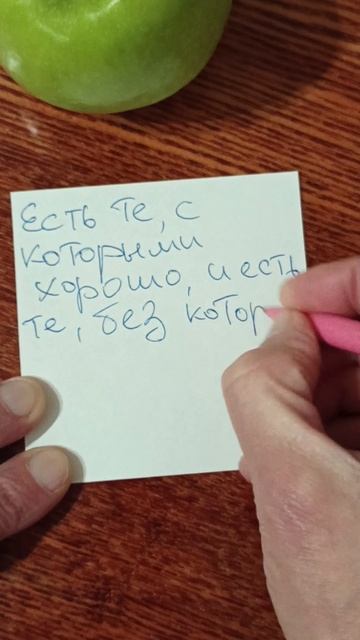 Есть те, с
которыми
хорошо, и есть
те, без котор